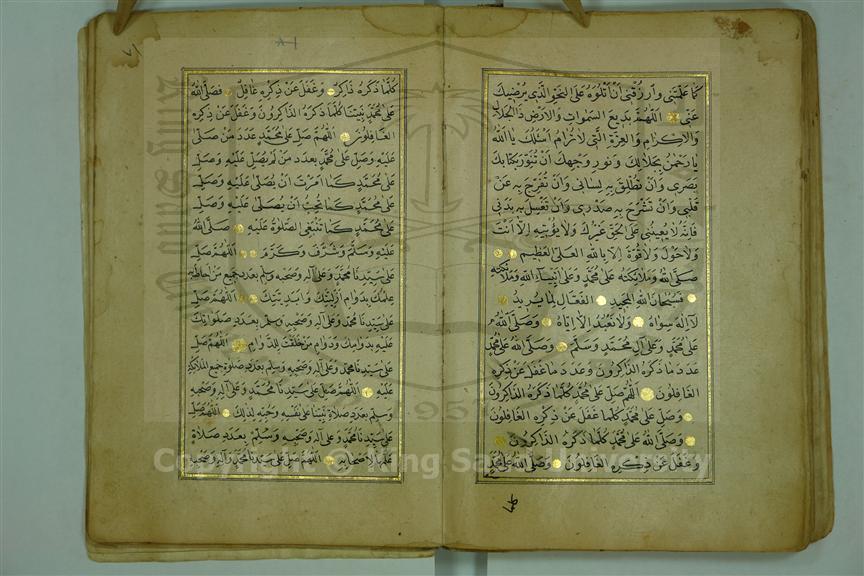 كما علمتني وارزقني أن أتلوه على النحو الذي يرضيك
عني اللهم بديع السموات والارض ذا الجلال
والاكرام والعزة التي لا ترام اسئلك يا الله
يا رحمن بجلالك ونور وجهك ان تنور بكتابك
بصري وان تطلق به لساني وان تفرج به عن
قلبي وان تشرح به صدري وان تغسل به بدني
فانه لا يعينني على الحق غيرك ولا يؤتيه الا انت
ولا حول ولا قوة الا بالله العلي العظيم
صلى الله وملائكته على محمد وعلى انبياء الله وملائكته
فسبحان الله المجيد الفعال لما يريد
لا اله سواه ولا نعبد الا اياه وصلى الله
على محمد وعلى آل محمد وسلم وصلى الله على محمد
عدد ما ذكره الذاكرون وعدد ما غفل عن ذكره
الغافلون اللهم صل على محمد كلما ذكره الذاكرون
وصل على محمد كلما غفل عن ذكره الغافلون
وصلى الله على محمد كلما ذكره الذاكرون
وغفل عن ذكره الغافلون وصلى الله على محمد
كلما ذكره ذاكر وغفل عن ذكره غافل فصلى الله
على محمد نبينا كلما ذكره الذاكرون وغفل عن ذكره
الغافلون اللهم صل على محمد عدد من صلى
عليه وصل على محمد بعدد من لم يصل عليه وصل
على محمد كما امرت ان يصلى عليه وصل
على محمد كما تحب ان يصلى عليه وصل
على محمد كما تنبغي الصلوة عليه صلى الله
عليه وسلم وشرف وكرم اللهم صل
على سيدنا محمد وعلى آله وصحبه وسلم بعدد جميع من احاط به
علمك بدوام ازليتك وابديتك اللهم صل
على سيدنا محمد وعلى آله وصحبه وسلم بعدد صلواتك
عليه بدوامك وبدوام من خلقت للدوام اللهم صل
على سيدنا محمد وعلى آله وصحبه وسلم بعدد صلوة جميع الملائكة
عليه اللهم صل على سيدنا محمد وعلى آله وصحبه
وسلم بعدد صلاة نبينا على نفسه وحبه لذلك اللهم صل
على سيدنا محمد وعلى آله وصحبه وسلم بعدد صلاة
اللهم صل على سيدنا محمد وآله وصحبه
Copyright © King Saud University